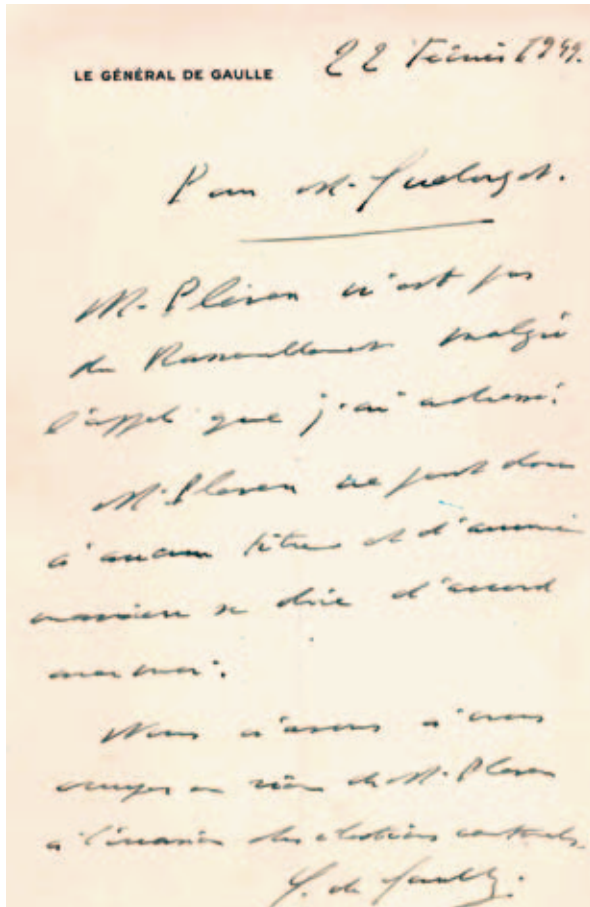 LE GÉNÉRAL DE GAULLE
22 Février 1949.
Pour M. Guelorget.
M. Pleven n'est pas
du Rassemblement malgré
l'appel que j'ai adressé.
M. Pleven ne peut donc
à aucun titre et d'aucune
manière se dire d'accord
avec moi.
Nous n'avons à nous
occuper en rien de M. Pleven
à l'occasion des élections cantonales.
G. de Gaulle.